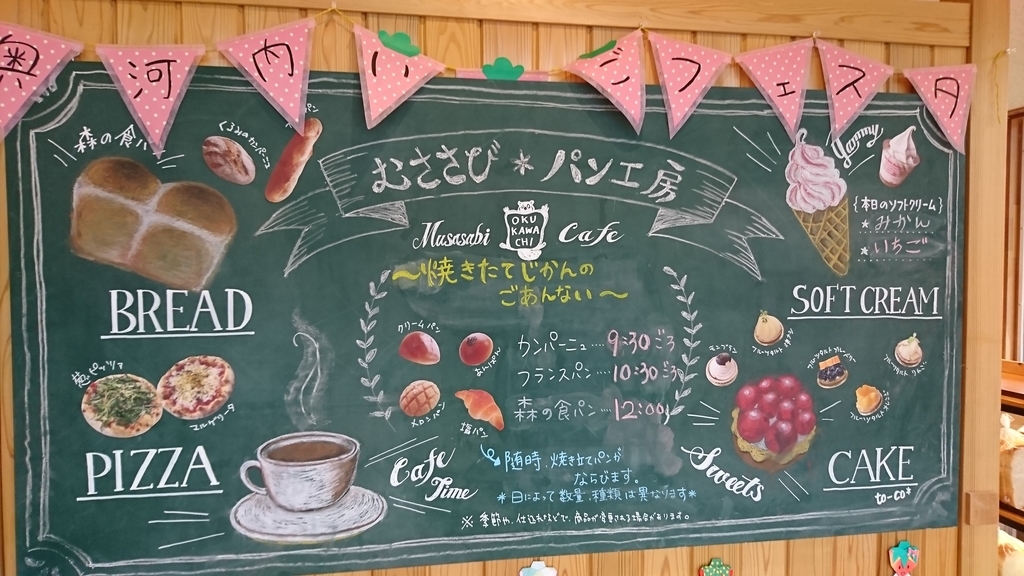 奥河内いちごフェスタ
森の食パン
くるみ
むささび*パン工房
Musasabi Cafe
OKU
KAWA
CHI
〜焼きたてじかんの
ごあんない〜
Yammy
{本日のソフトクリーム}
*みかん
*いちご
BREAD
SOFT CREAM
クリームパン
あんぱん
メロンパン
塩パン
カンパーニュ…9:30ごろ
フランスパン…10:30ごろ
森の食パン…12:00
モンブラン
マルゲリータ
PIZZA
Cafe
Time
Sweets
CAKE
to-co*
随時、焼き立てパンが
ならびます。
*日によって数量、種類は異なります*
※季節や、仕込みなどで、商品が変更される場合があります。